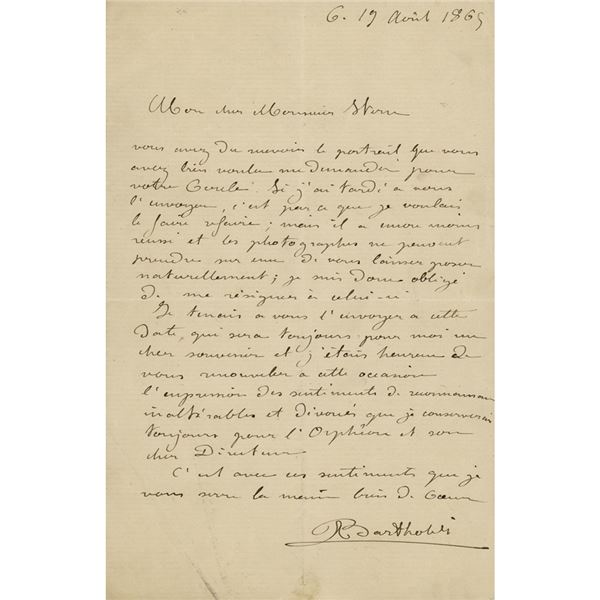 C. 19 Août 1865
Mon cher Monsieur Stern
vous avez du recevoir le portrait que vous
avez bien voulu me demander pour
votre Cercle. Si j'ai tardé a vous
l'envoyer, c'est par ce que je voulais
le faire refaire; mais il a encore moins
réussi et les photographes ne peuvent
prendre sur eux de vous laisser poser
naturellement; je suis donc obligé
de me résigner à celui-ci
Je tenais a vous l'envoyer a cette
date, qui sera toujours pour moi un
cher souvenir et j'étais heureux de
vous renouveler a cette occasion
l'expression des sentiments de reconnaissance
inaltérables et dévoués que je conserverai
toujours pour l'Orphéon et son
cher Directeur
C'est avec ces sentiments que je
vous serre la main bien de Cœur
Bartholdi